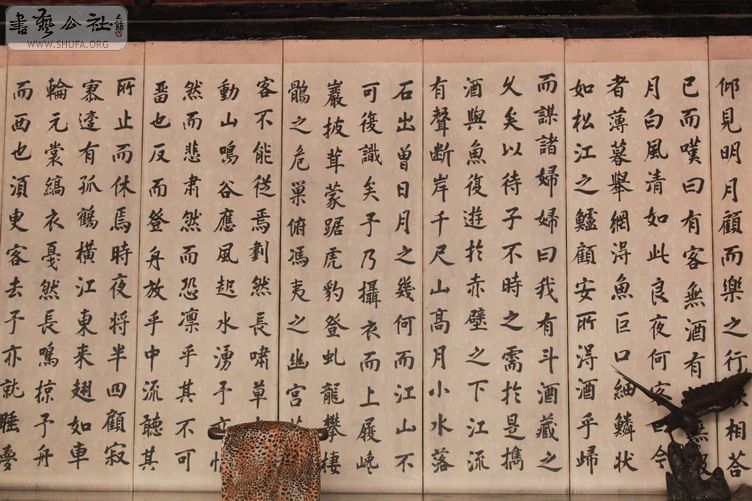 書藝公社
WWW.SHUFA.ORG
仰見明月顧而樂之行相荅
已而嘆曰有客無酒有無
月白風清如此良夜何客曰今
者薄暮舉網淂魚巨口細鱗狀
如松江之鱸顧安所淂酒乎歸
而謀諸婦婦曰我有斗酒藏之
久矣以待子不時之需於是攜
酒與魚復遊於赤壁之下江流
有聲斷岸千尺山高月小水落
石出曾日月之幾何而江山不
可復識矣予乃攝衣而上履巉
巖披茸蒙踞虎豹登虬龍攀棲
鶻之危巢俯馮夷之幽宮
客不能從焉劃然長嘯草
動山鳴谷應風起水湧予
然而悲肅然而恐凛乎其不可
畱也反而登舟放乎中流聽其
所止而休焉時夜將半四顧寂
寥適有孤鶴橫江東来翅如車
輪元裳縞衣戛然長鳴掠予舟
而西也須臾客去予亦就睡夢